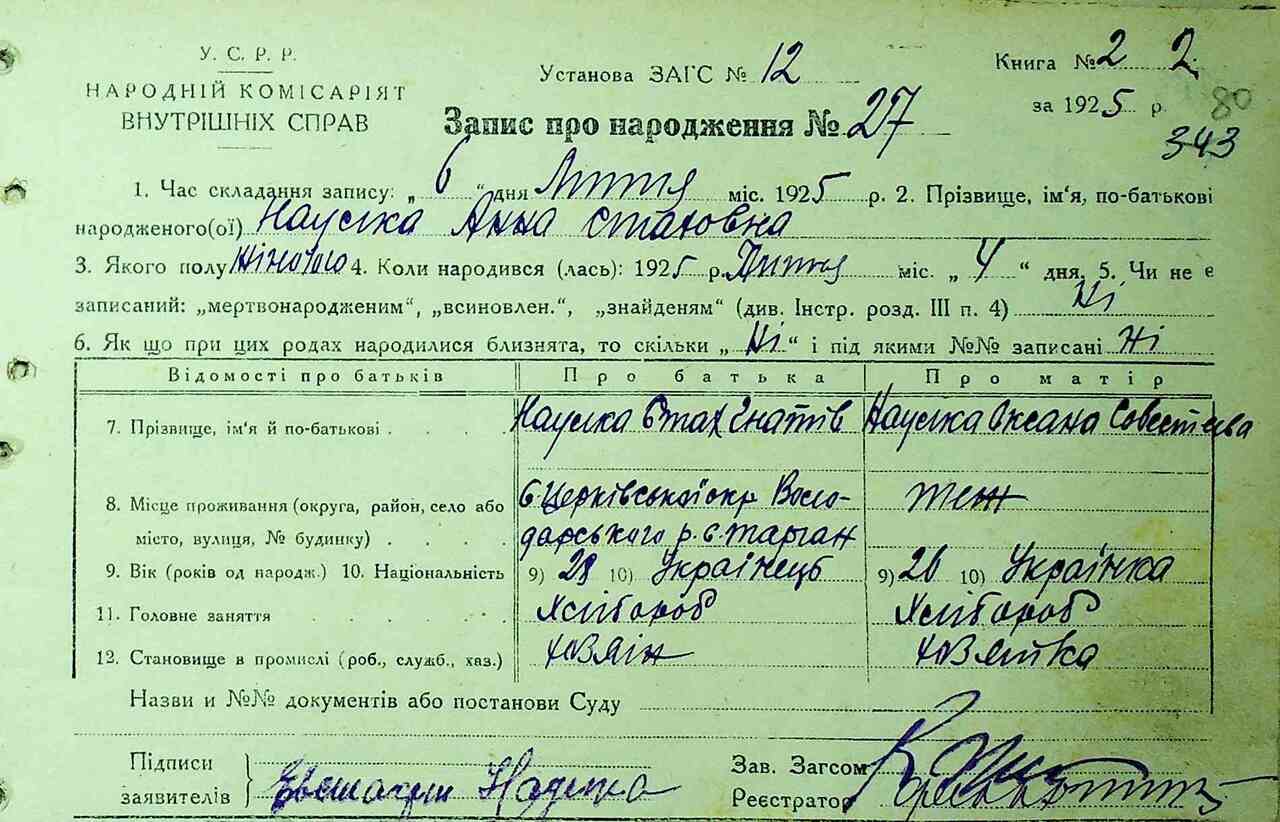 У. С. Р. Р.
НАРОДНІЙ КОМІСАРІЯТ
ВНУТРІШНІХ СПРАВ
Установа ЗАГС № 12
Книга № 2 2
за 1925 р. 80
Запис про народження № 27
343
1. Час складання запису: „ 6 “ дня міс. 1925 р. 2. Прізвище, ім'я, по-батькові
народженого(ої) Анна
3. Якого полу жіночого 4. Коли народився (лась): 1925 р. міс. „ 4 “ дня. 5. Чи не є
записаний: „мертвонародженим“, „всиновлен.“, „знайденям“ (див. Інстр. розд. III п. 4) Ні
6. Як що при цих родах народилися близнята, то скільки „ Ні “ і під якими №№ записані Ні
Відомості про батьків Про батька Про матір
7. Прізвище, ім'я й по-батькові . . . . Оксана
8. Місце проживання (округа, район, село або Б Церківської окр Воло- теж
місто, вулиця, № будинку) . . . . дарського р. с. Тарган
9. Вік (років од народж.) 10. Національність 9) 28 10) Українець 9) 26 10) Українка
11. Головне заняття . . . . . Хлібороб Хлібороб
12. Становище в промислі (роб., служб., хаз.) хазяїн хазяйка
Назви и №№ документів або постанови Суду
Підписи
заявителів
Зав. Загсом
Реєстратор